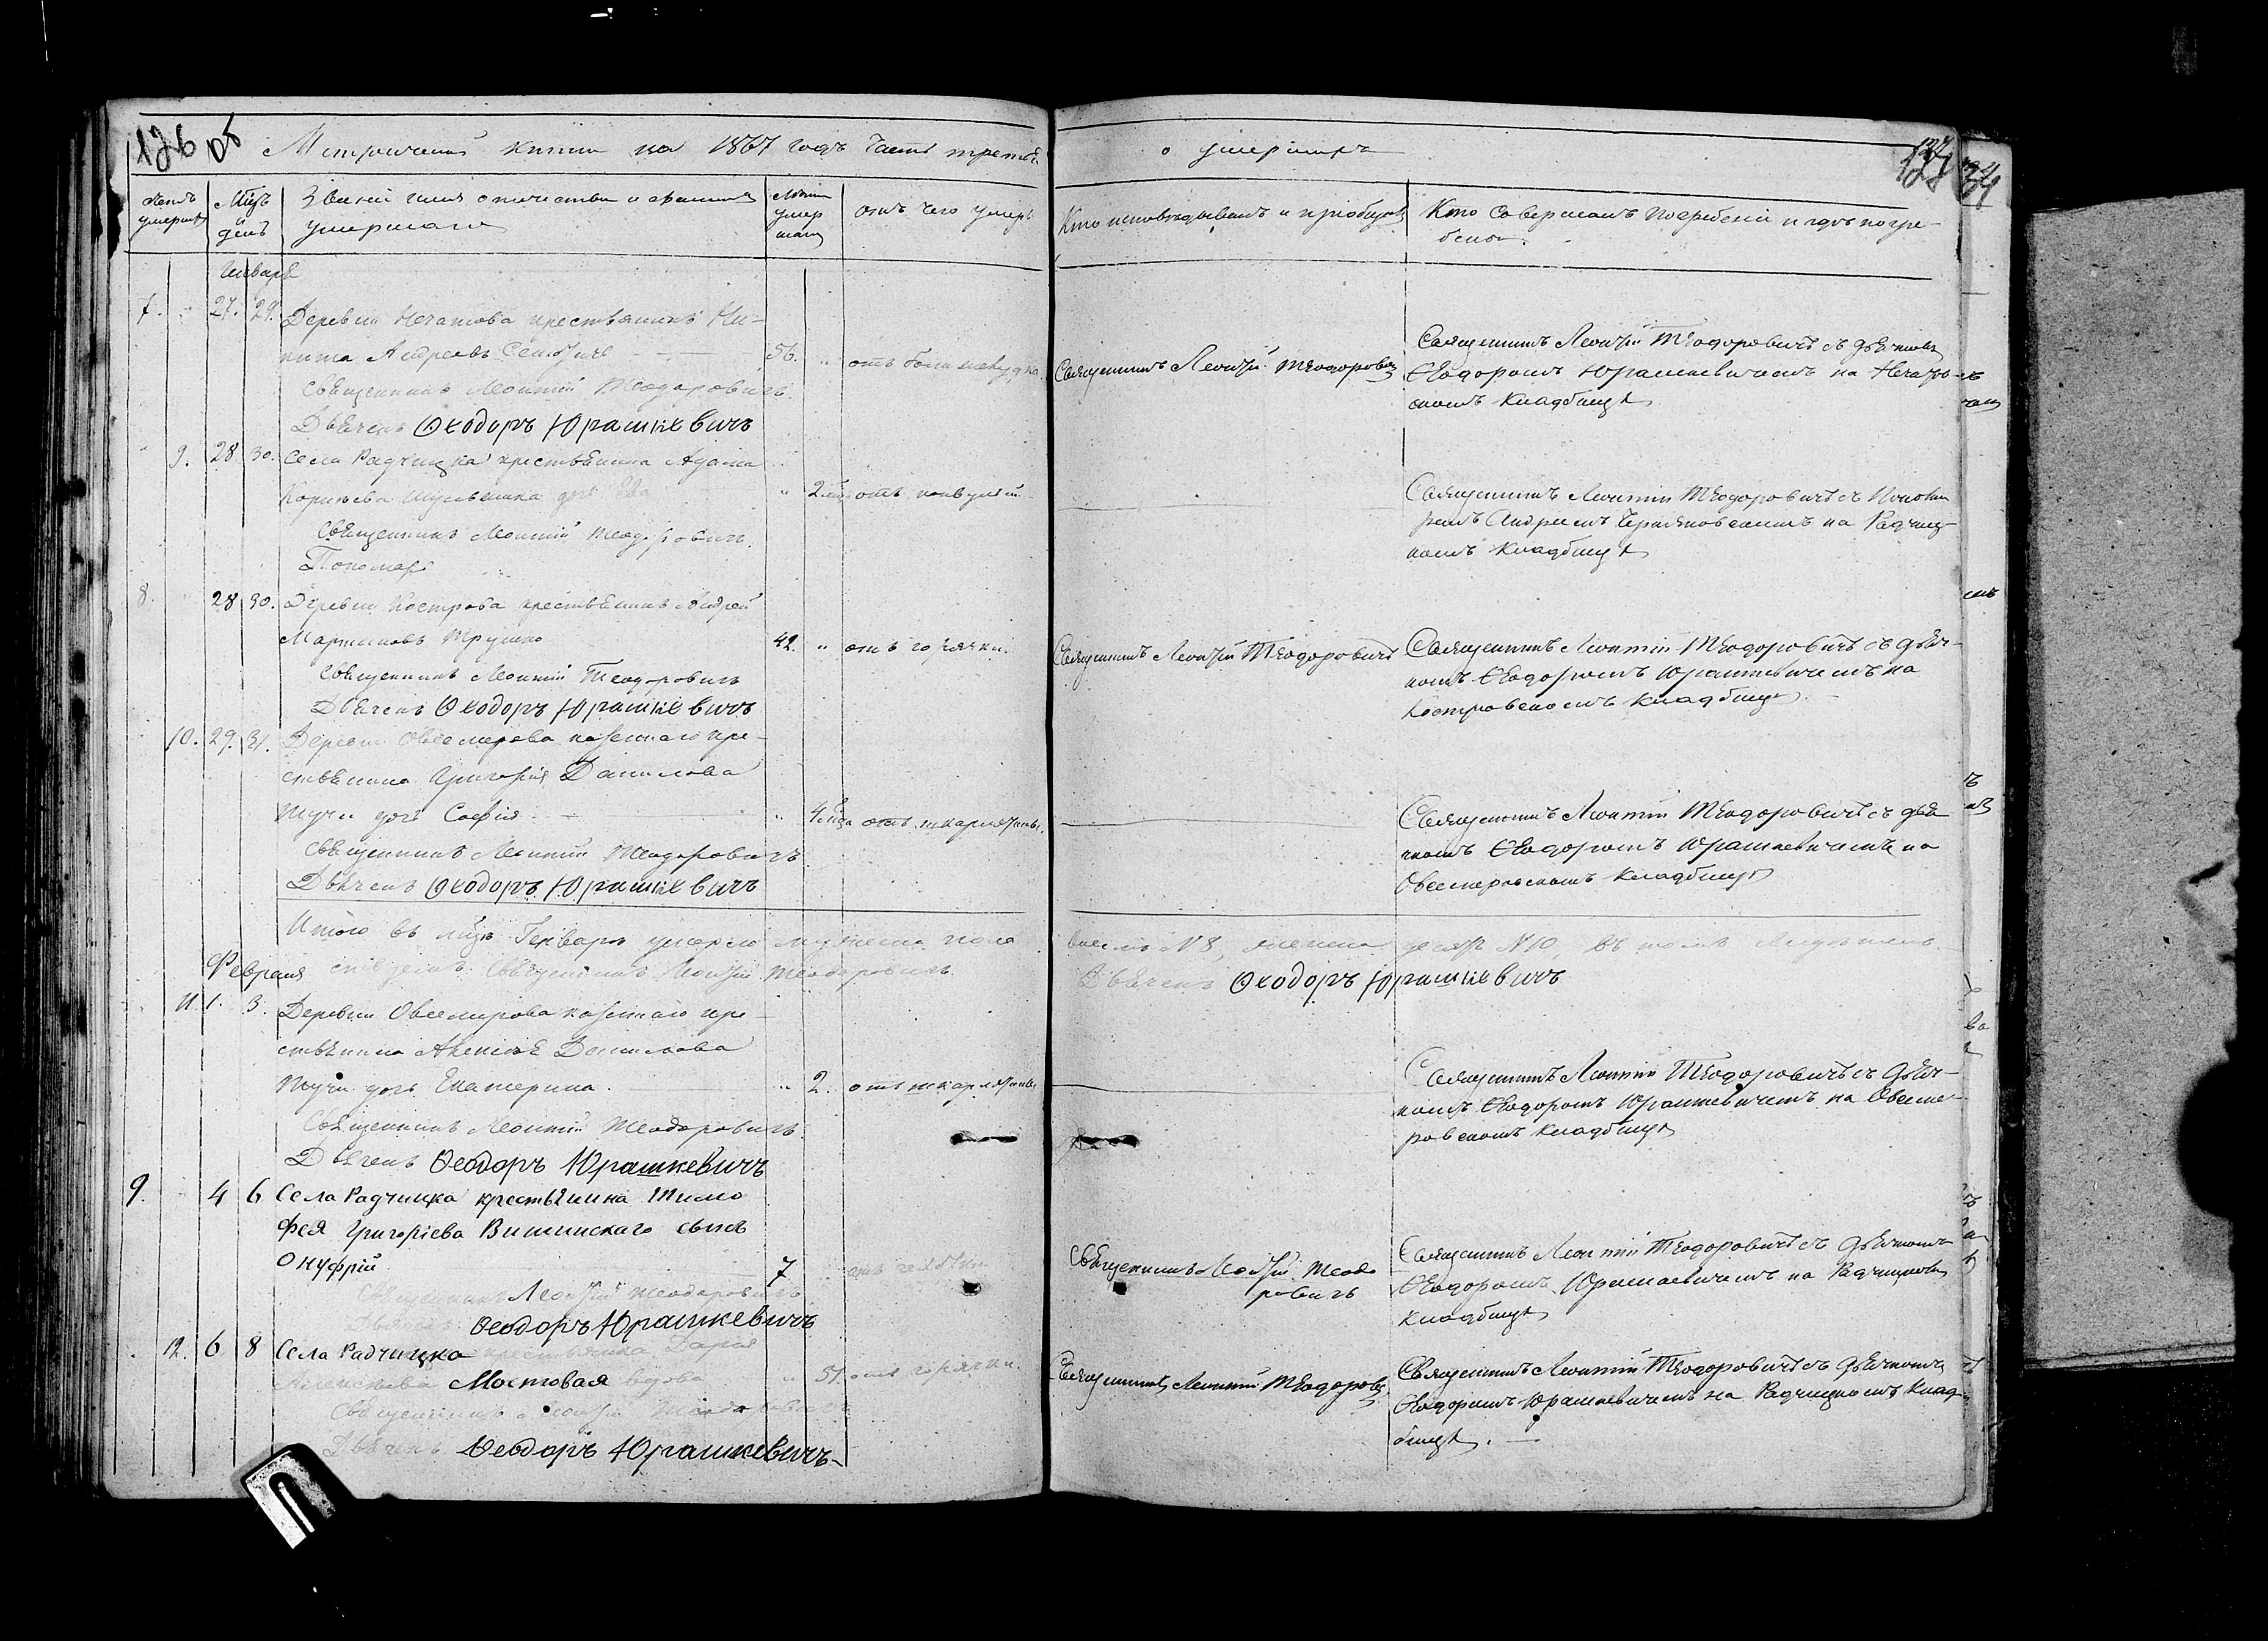 126 об
Метрической книги на 1867 годъ часть третья
о умершихъ
127
34
Счетъ умершихъ
Мѣсяцъ и день
Званіе имя отчество и фамилія умершаго
Лѣта умершаго
отъ чего умеръ
Кто исповѣдывалъ и пріобщалъ
Кто совершалъ погребеніе и гдѣ погребены
Января
7. 27. 29. Деревни Нечатова крестьянинъ Ни-
кита Андреевъ 56. отъ боли желудка
Священникъ Леонтій Теодоровичъ
Дьячекъ Ѳеодоръ Юрашкевичъ
Священникъ Леонтій Теодоровичъ
Священникъ Леонтій Теодоровичъ съ дьячкомъ
Ѳеодоромъ Юрашкевичемъ на Нечатов-
скомъ кладбищѣ
9. 28 30. Села Радчицка крестьянина Адама
дочь Ева 2 отъ конвульсій
Священникъ Леонтій Теодоровичъ
Пономарь
Священникъ Леонтій Теодоровичъ съ Поно
маремъ Андреемъ на Радчиц-
комъ кладбищѣ
8. 28 30. Деревни Кострова крестьянинъ Андрей
Мартиновъ Трушко 42. отъ горячки.
Священникъ Леонтій Теодоровичъ
Дьячекъ Ѳеодоръ Юрашкевичъ
Священникъ Леонтій Теодоровичъ
Священникъ Леонтій Теодоровичъ съ дьяч-
комъ Ѳеодоромъ Юрашкевичемъ на
Костровскомъ кладбищѣ
10. 29. 31. Деревни Овсемирова казеннаго кре-
стьянина Григорія Данилова
дочь Софія 4 мѣсяца отъ шкарлятины.
Священникъ Леонтій Теодоровичъ
Дьячекъ Ѳеодоръ Юрашкевичъ
Священникъ Леонтій Теодоровичъ съ дья
чкомъ Ѳеодоромъ Юрашкевичемъ на
Овсемировскомъ кладбищѣ
Итого въ Генварѣ умерло мужеска пола
восемь N 8, женска десять N 10, въ томъ
Священникъ Леонтій Теодоровичъ
Дьячекъ Ѳеодоръ Юрашкевичъ
Февраля
11. 1. 3. Деревни Овсемирова казеннаго кре-
стьянина Данилова
дочь Екатерина. 2. отъ шкарлятины
Священникъ Леонтій Теодоровичъ
Дьячекъ Ѳеодоръ Юрашкевичъ
Священникъ Леонтій Теодоровичъ съ дьяч-
комъ Ѳеодоромъ Юрашкевичемъ на Овсеми-
ровскомъ кладбищѣ
9. 4 6 Села Радчицка крестьянина Тимо
фея Григоріева Вишинскаго сынъ
Онуфрій 7
Священникъ Леонтій Теодоровичъ
Дьячекъ Ѳеодоръ Юрашкевичъ
Священникъ Леонтій Теодо
ровичъ
Священникъ Леонтій Теодоровичъ съ дьячкомъ
Ѳеодоромъ Юрашкевичемъ на Радчицкомъ
кладбищѣ
12. 6 8 Села Радчицка крестьянка Дарія
Алексѣева Мостовая вдова 51. отъ горячки.
Священникъ Леонтій Теодоровичъ
Дьячекъ Ѳеодоръ Юрашкевичъ
Священникъ Леонтій Теодоровичъ
Священникъ Леонтій Теодоровичъ съ дьячкомъ
Ѳеодоромъ Юрашкевичемъ на Радчицкомъ клад-
бищѣ.